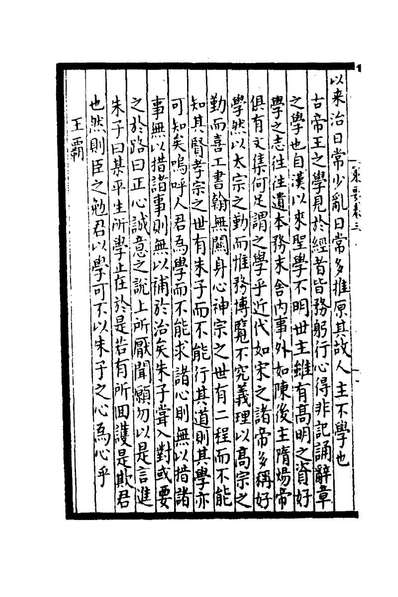 以来治日常少亂日常多推原其故人主不學也
古帝王之學見於經者皆務躬行心得非記誦辭章
之學也自漢以來聖學不明世主雖有髙明之資好
學之志往往遺本務末舍内事外如陳後主隋煬帝
俱有文集何足謂之學乎近代如宋之諸帝多稱好
學然以太宗之勤而惟務博覽不究義理以髙宗之
勤而善工書翰無關身心神宗之世有二程而不能
知其賢孝宗之世有朱子而不能行其道則其學亦
可知矣嗚呼人君為學而不能求諸心則無以措諸
事無以措諸事則無以補於治矣朱子甞入對或要
之於路曰正心誠意之說上所厭聞願勿以是言進
朱子曰某平生所學止在於是若有所回護是欺君
也然則臣之勉君以學可不以朱子之心為心乎
王霸